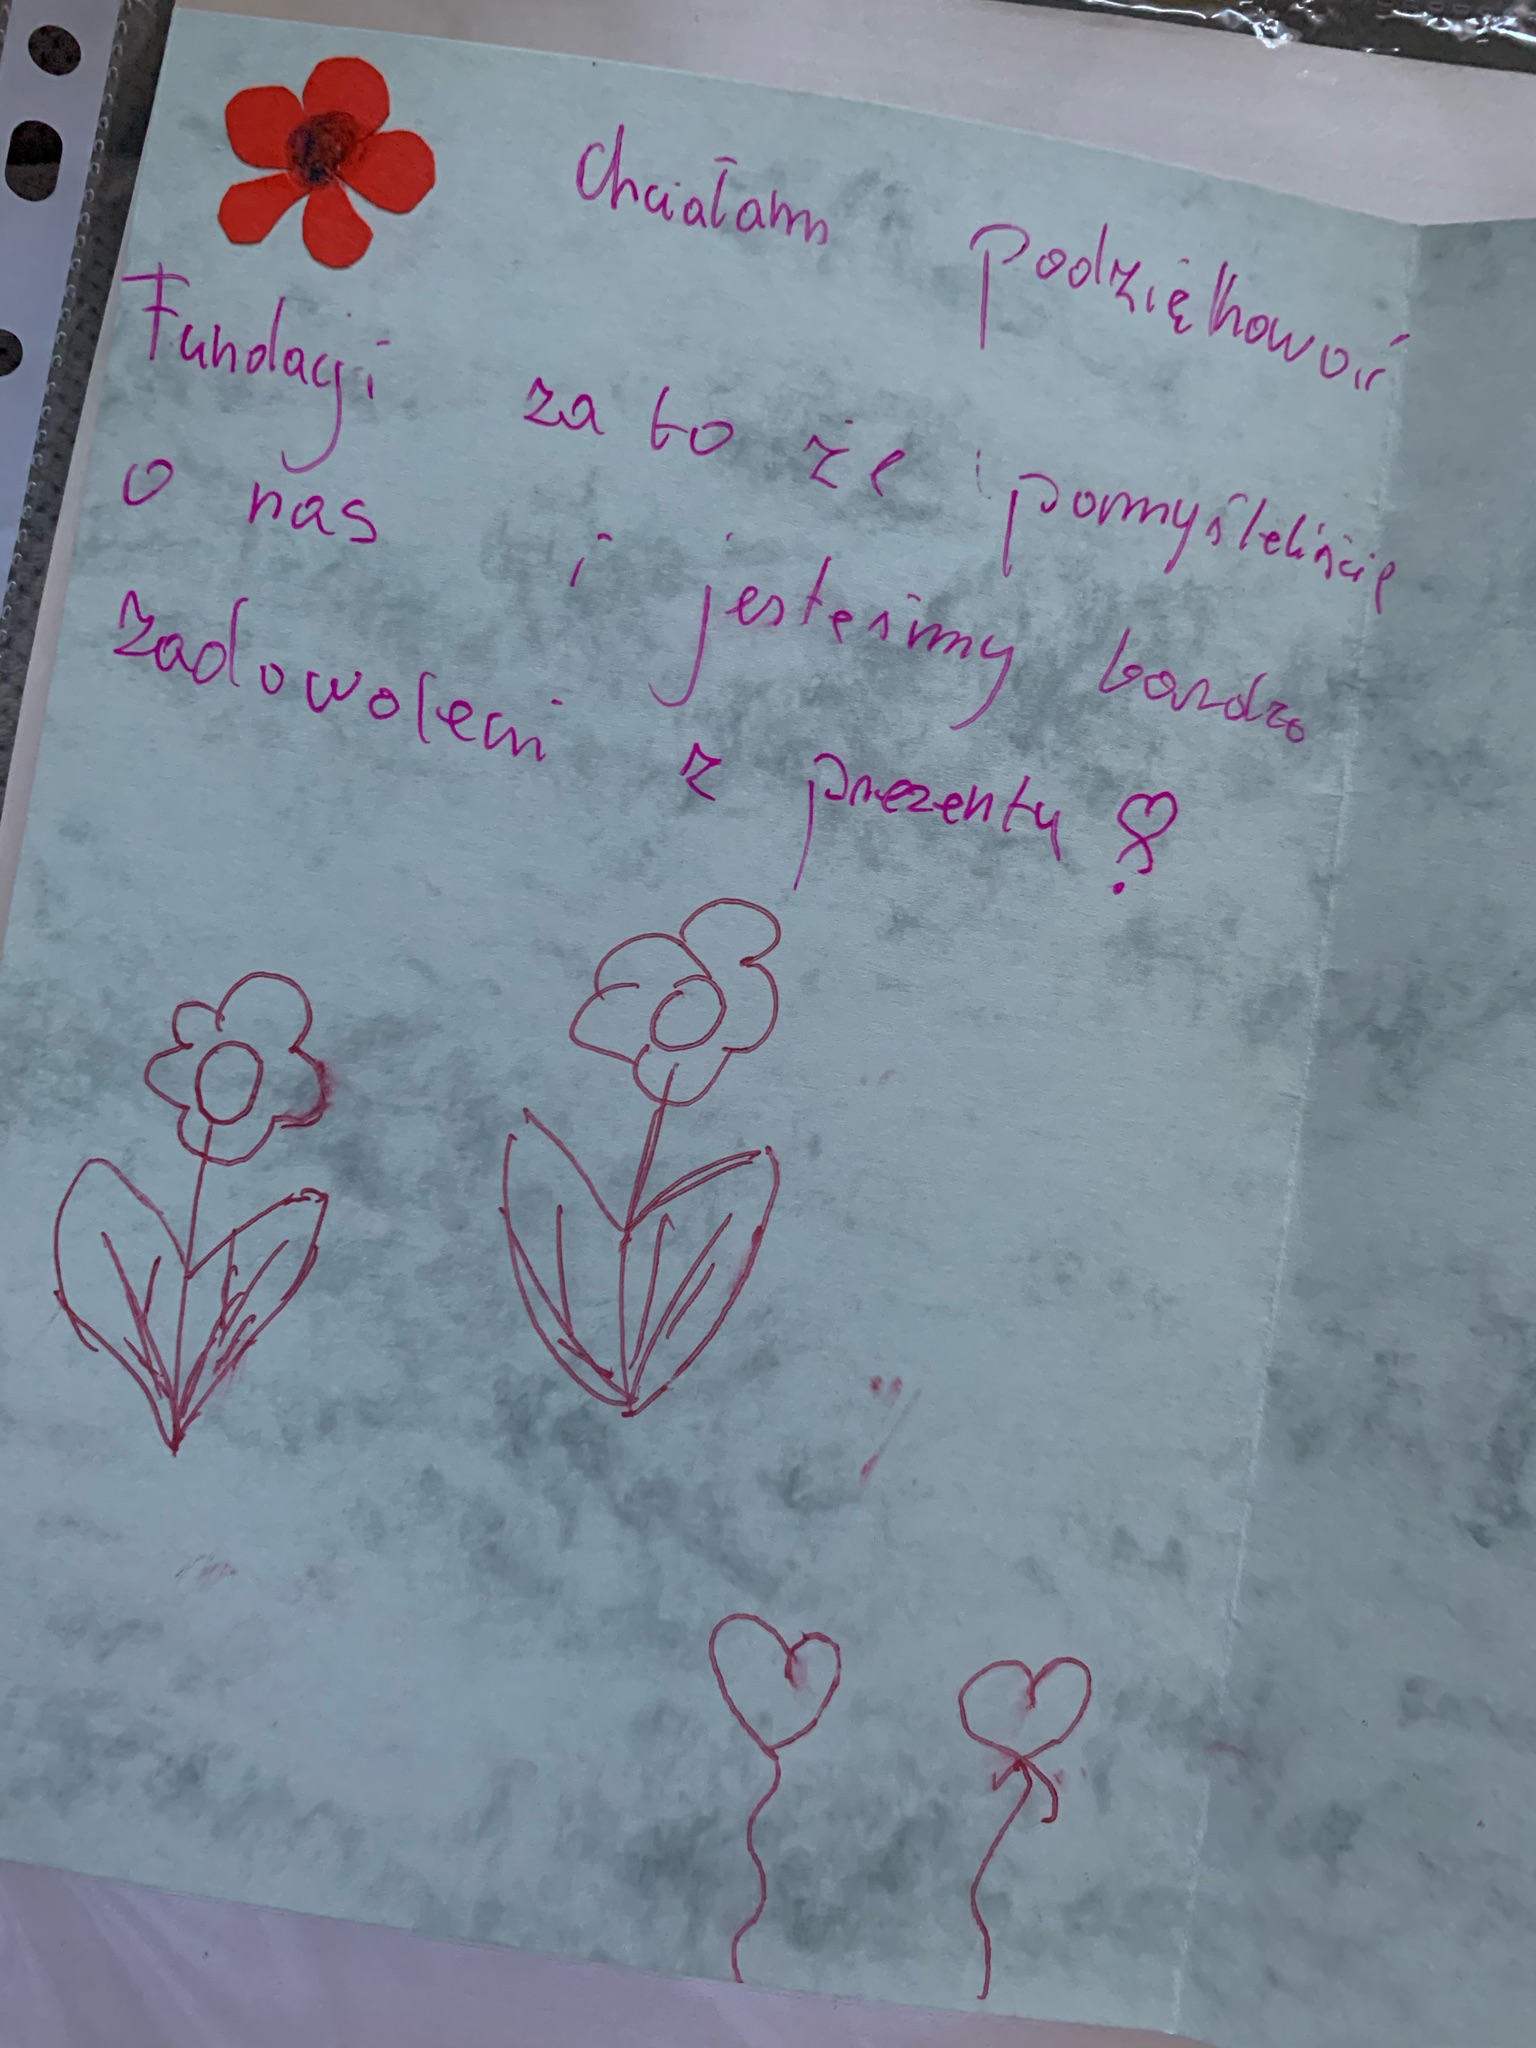 Chciałam podziękować
Fundacji za to że pomyśleliście
o nas i jesteśmy bardzo
zadowoleni z prezentu